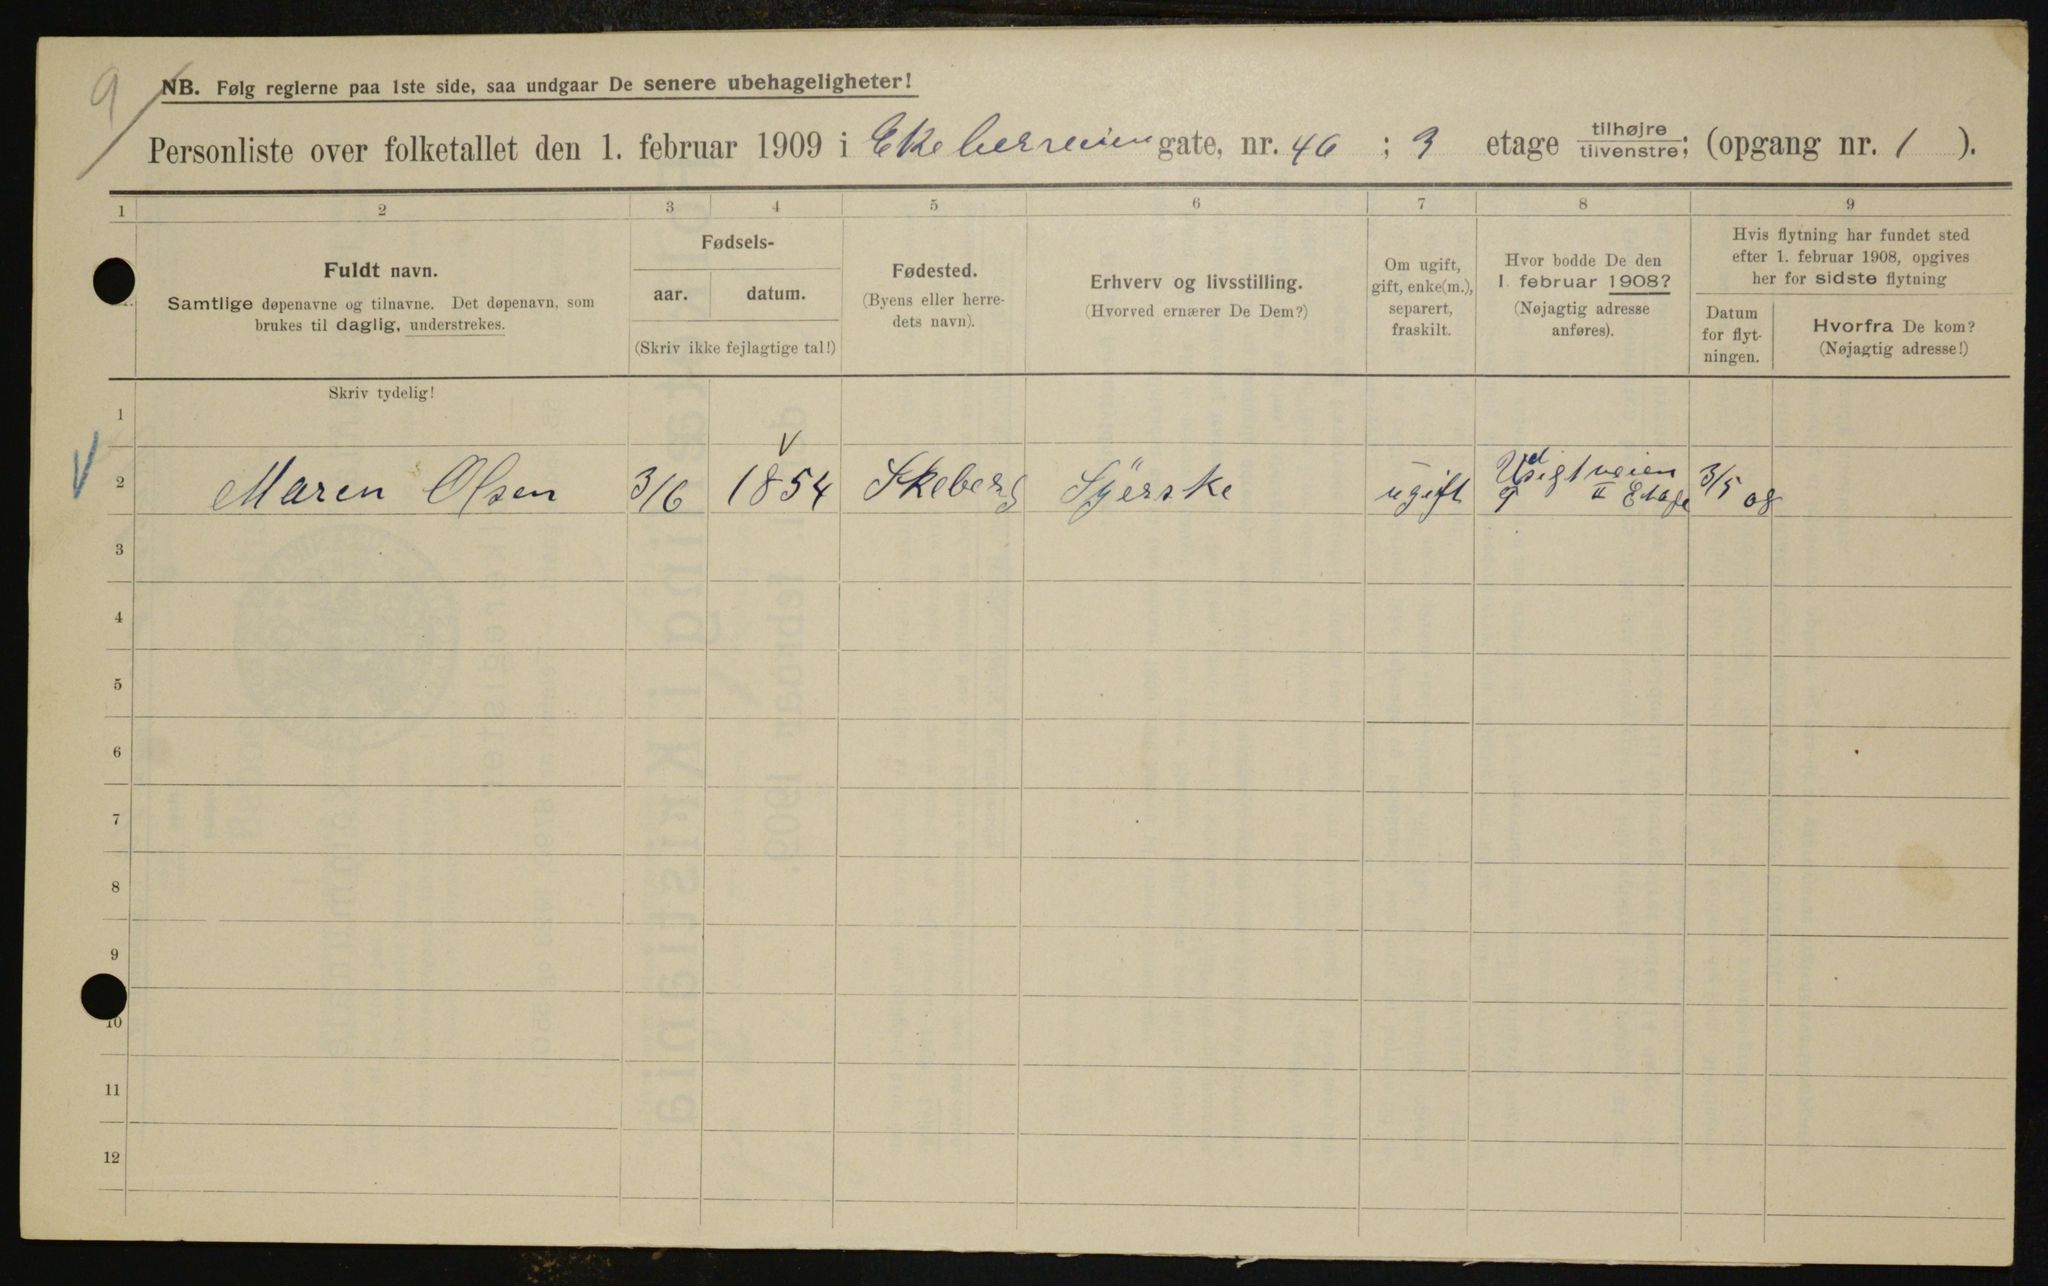 9
NB. Følg reglerne paa 1ste side, saa undgaar De senere ubehageligheter!
Personliste over folketallet den 1. februar 1909 i Ekeberreien gate, nr. 46 ; 3 etage tilhøjre/tilvenstre; (opgang nr. 1 ).
1 2 3 4 5 6 7 8 9
Fuldt navn.
Samtlige døpenavne og tilnavne. Det døpenavn, som
brukes til daglig, understrekes.
Fødsels-
aar. datum.
(Skriv ikke fejlagtige tal!)
Fødested.
(Byens eller herre-
dets navn).
Erhverv og livsstilling.
(Hvorved ernærer De Dem?)
Om ugift,
gift, enke(m.),
separert,
fraskilt.
Hvor bodde De den
1. februar 1908?
(Nøjagtig adresse
anføres).
Hvis flytning har fundet sted
efter 1. februar 1908, opgives
her for sidste flytning
Datum
for flyt-
ningen.
Hvorfra De kom?
(Nøjagtig adresse!)
Skriv tydelig!
1
2 Maren Olsen 3/6 1854 Skeberg Syerske ugift Udsigtveien 9 II Etage 3/5 08
3
4
5
6
7
8
9
10
11
12